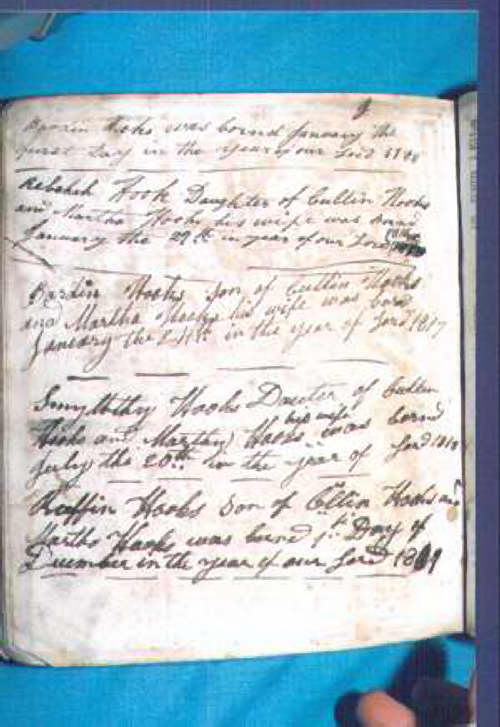 Bardin Hooks was bornd January the
first Day in the year of our Lord
Rebekah Hook Daughter of Cullin Hooks
and Martha Hooks his wife was bornd
January the 29th in year of our Lord
Bardin Hooks Son of Cullin Hooks
and Martha Hooks his wife was born
January the 24th in the year of Lord 1817
Hooks Daeter of Cullin
his wife
Hooks and Marthy Hooks was bornd
July the 20th in the year of Lord 1818
Ruffin Hooks Son of Cullin Hooks and
Martha Hooks was bornd 1st Day of
December in the year of our Lord